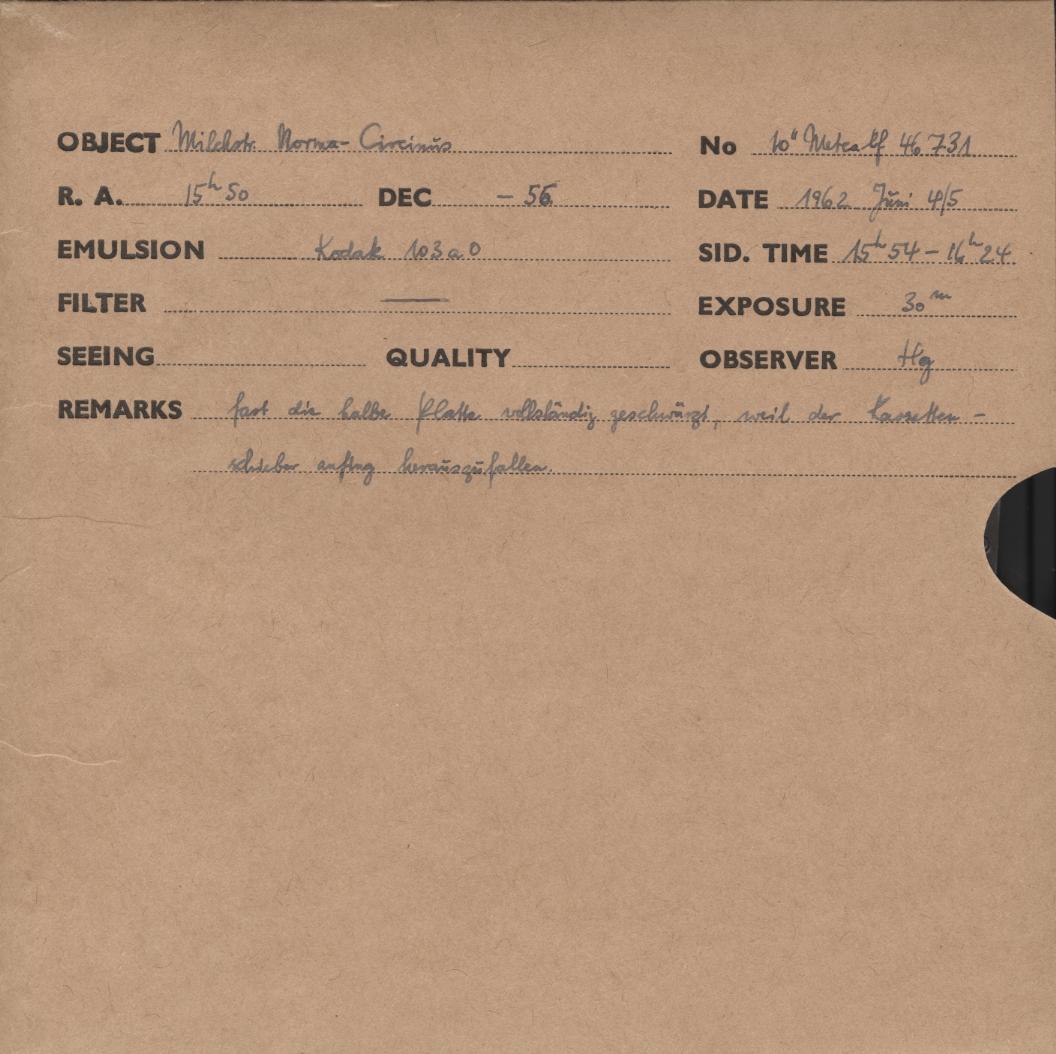 OBJECT Milchstr. Norma-Circinus No 10" Metcalf 46 731
R. A. 15h 50 DEC - 56 DATE 1962 Juni 4/5
EMULSION Kodak 103 a O SID. TIME 15h 54 - 16h 24
FILTER — EXPOSURE 30m
SEEING QUALITY OBSERVER Hg
REMARKS fast die halbe Platte vollständig geschwärzt, weil der Kassetten-
schieber anfing herauszufallen.